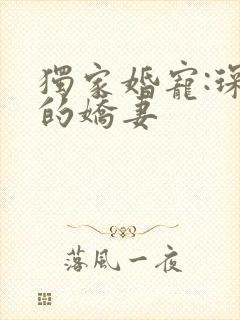 獨家婚寵:
的嬌妻
落風一夜